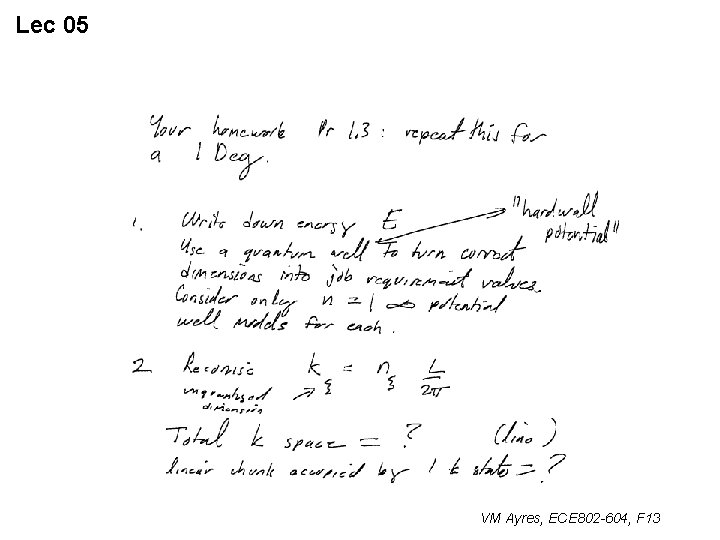 Lec 05
Your homework Pr 1.3 : repeat this for
a 1 Deg.
1. Write down energy E "hardwall
potential"
Use a quantum well to turn correct
dimensions into job requirement values.
Consider only n = 1 ∞ potential
well models for each.
2 Recognize k = n L
ξ ξ 2π
unquantized
dimension
Total k space = ? (line)
linear chunk occupied by 1 k state = ?
VM Ayres, ECE802-604, F13